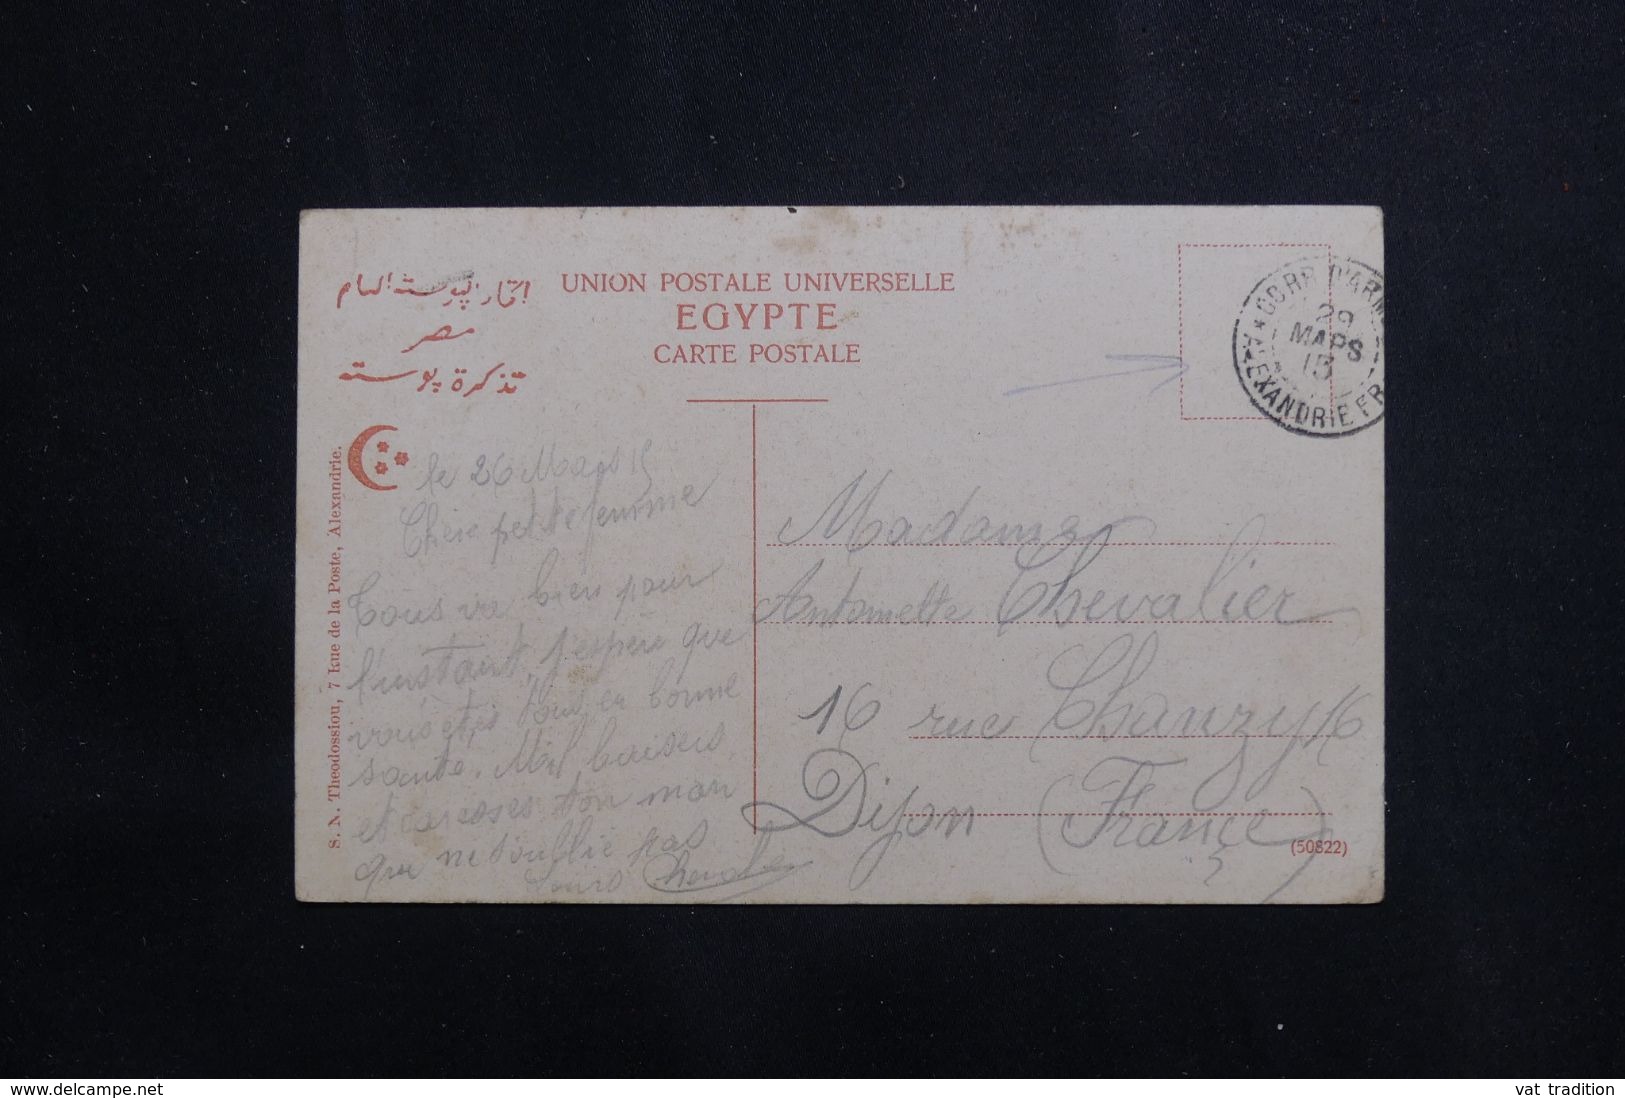 اتحاد البوسته العام
مصر
تذكرة بوسته
UNION POSTALE UNIVERSELLE
EGYPTE
CARTE POSTALE
CORR D'ARM
29
MARS
15
ALEXANDRIE FR
S. N. Theodossiou, 7 Rue de la Poste, Alexandrie.
le 26 Mars 15
Chère petite femme
Tous va bien pour
l'instant j'espère que
vous êtes tous en bonne
santé. Mil baisers
et caresses ton mon
que ne t'oublie pas
Louis Chevalier
Madame
Antoinette Chevalier
16 rue Chanzy 16
Dijon (France)
(50822)
www.delcampe.net
vat tradition